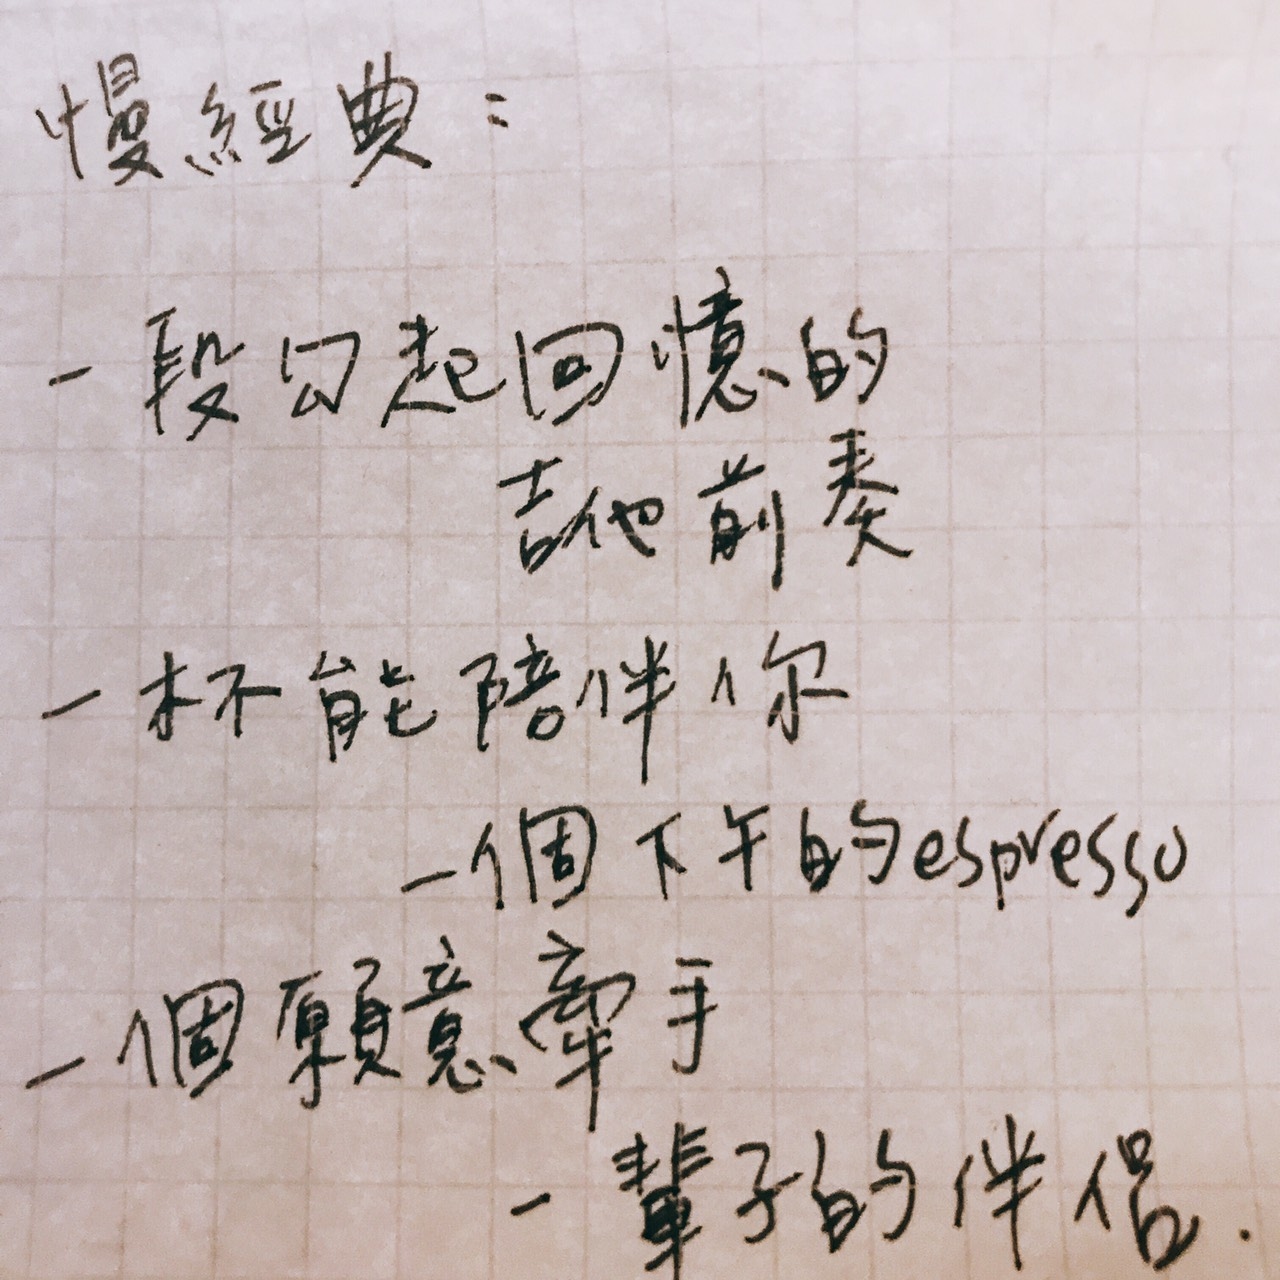 慢經典：
一段勾起回憶的
吉他前奏
一杯能陪伴你
一個下午的espresso
一個願意牽手
一輩子的伴侶.